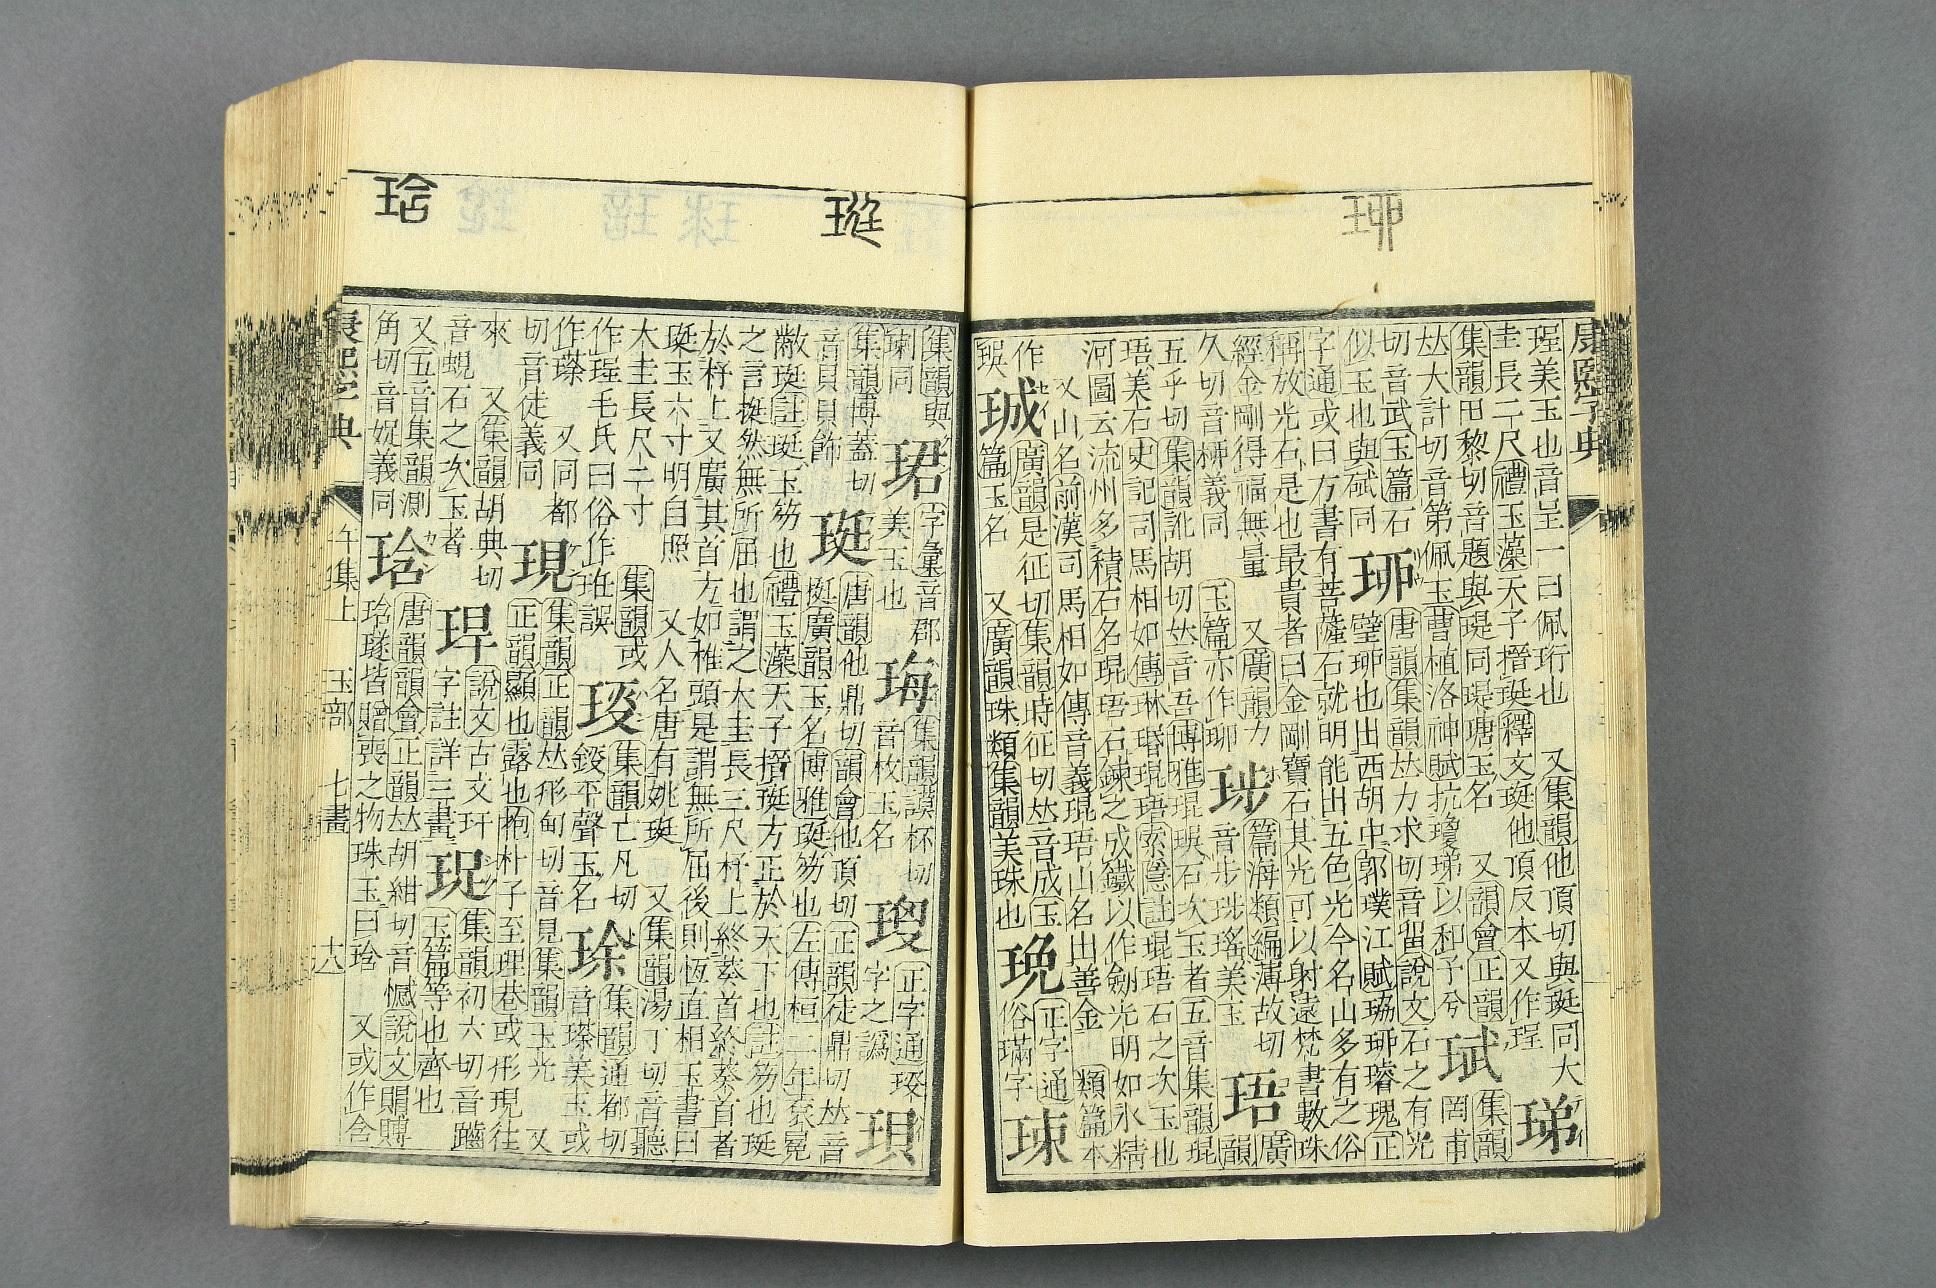 珋
康熙字典
珵美玉也音呈一曰佩珩也　又集韻他頂切與珽同大
圭長二尺禮玉藻天子搢珽釋文珽他頂反本又作珵
珶
集韻田黎切音題與瑅同瑅瑭玉名　又韻會正韻
𠀤大計切音第佩玉曹植洛神賦抗瓊珶以和予兮
珷
集韻
罔甫
切音武玉篇石
似玉也與碔同
珋
唐韻集韻𠀤力求切音畱說文石之有光
璧珋也出西胡中郭璞江賦珕珋璿瑰正
字通或曰方書有菩薩石就明能出五色光今名山多有之俗
稱放光石是也最貴者曰金剛寶石其光可以射遠梵書數珠
經金剛得福無量　又廣韻力
久切音柳義同　玉篇亦作珋
篇海類編薄故切
音步瑤美玉
珸
廣
韻
五乎切集韻訛胡切𠀤音吾博雅琨珸石次玉者五音集韻琨
珸美石史記司馬相如傳琳瑉琨珸索隱註琨珸石之次玉也
河圖云流州多積石名琨珸石鍊之成鐵以作劒光明如水精
又山名前漢司馬相如傳音義琨珸山名出善金　類篇本
作
誤
珹
廣韻是征切集韻時征切𠀤音成玉
篇玉名　又廣韻珠類集韻美珠也
正字通
俗璊字
珽
琀
集韻與
同
珺
字彙音郡
美玉也
珻
集韻謨杯切
音枚玉名
正字通
字之譌
珼
集韻博蓋切
音貝貝飾
珽
唐韻他鼎切韻會他頂切正韻徒鼎切𠀤音
挺廣韻玉名博雅珽笏也左傳桓二年袞冕
黻珽註珽玉笏也禮玉藻天子搢珽方正於天下也註笏也珽
之言挺然無所屈也謂之大圭長三尺杼上終葵首終葵首者
於杼上又廣其首方如椎頭是謂無所屈後則恆直相玉書曰
珽玉六寸明自照　又人名唐有姚珽　又集韻湯丁切音聽
大圭長尺二寸　集韻或
作珵毛氏曰俗作誤
集韻亡凡切
鋄平聲玉名
㻌
集韻通都切
音瑹美玉或
作瑹　又同都
切音徒義同
現
集韻正韻𠀤形甸切音見集韻玉光　又
正韻顯也露也抱朴子至理卷或形現往
來　又集韻胡典切
音蜆石之次玉者
說文古文玕
字註詳三畫
珿
集韻初六切音
玉篇等也齊也
又五音集韻測
角切音娖義同
琀
唐韻韻會正韻𠀤胡紺切音憾說文賵賻
琀襚皆贈喪之物珠玉曰琀　又或作含
康熙字典　午集上　玉部　七畫　十八